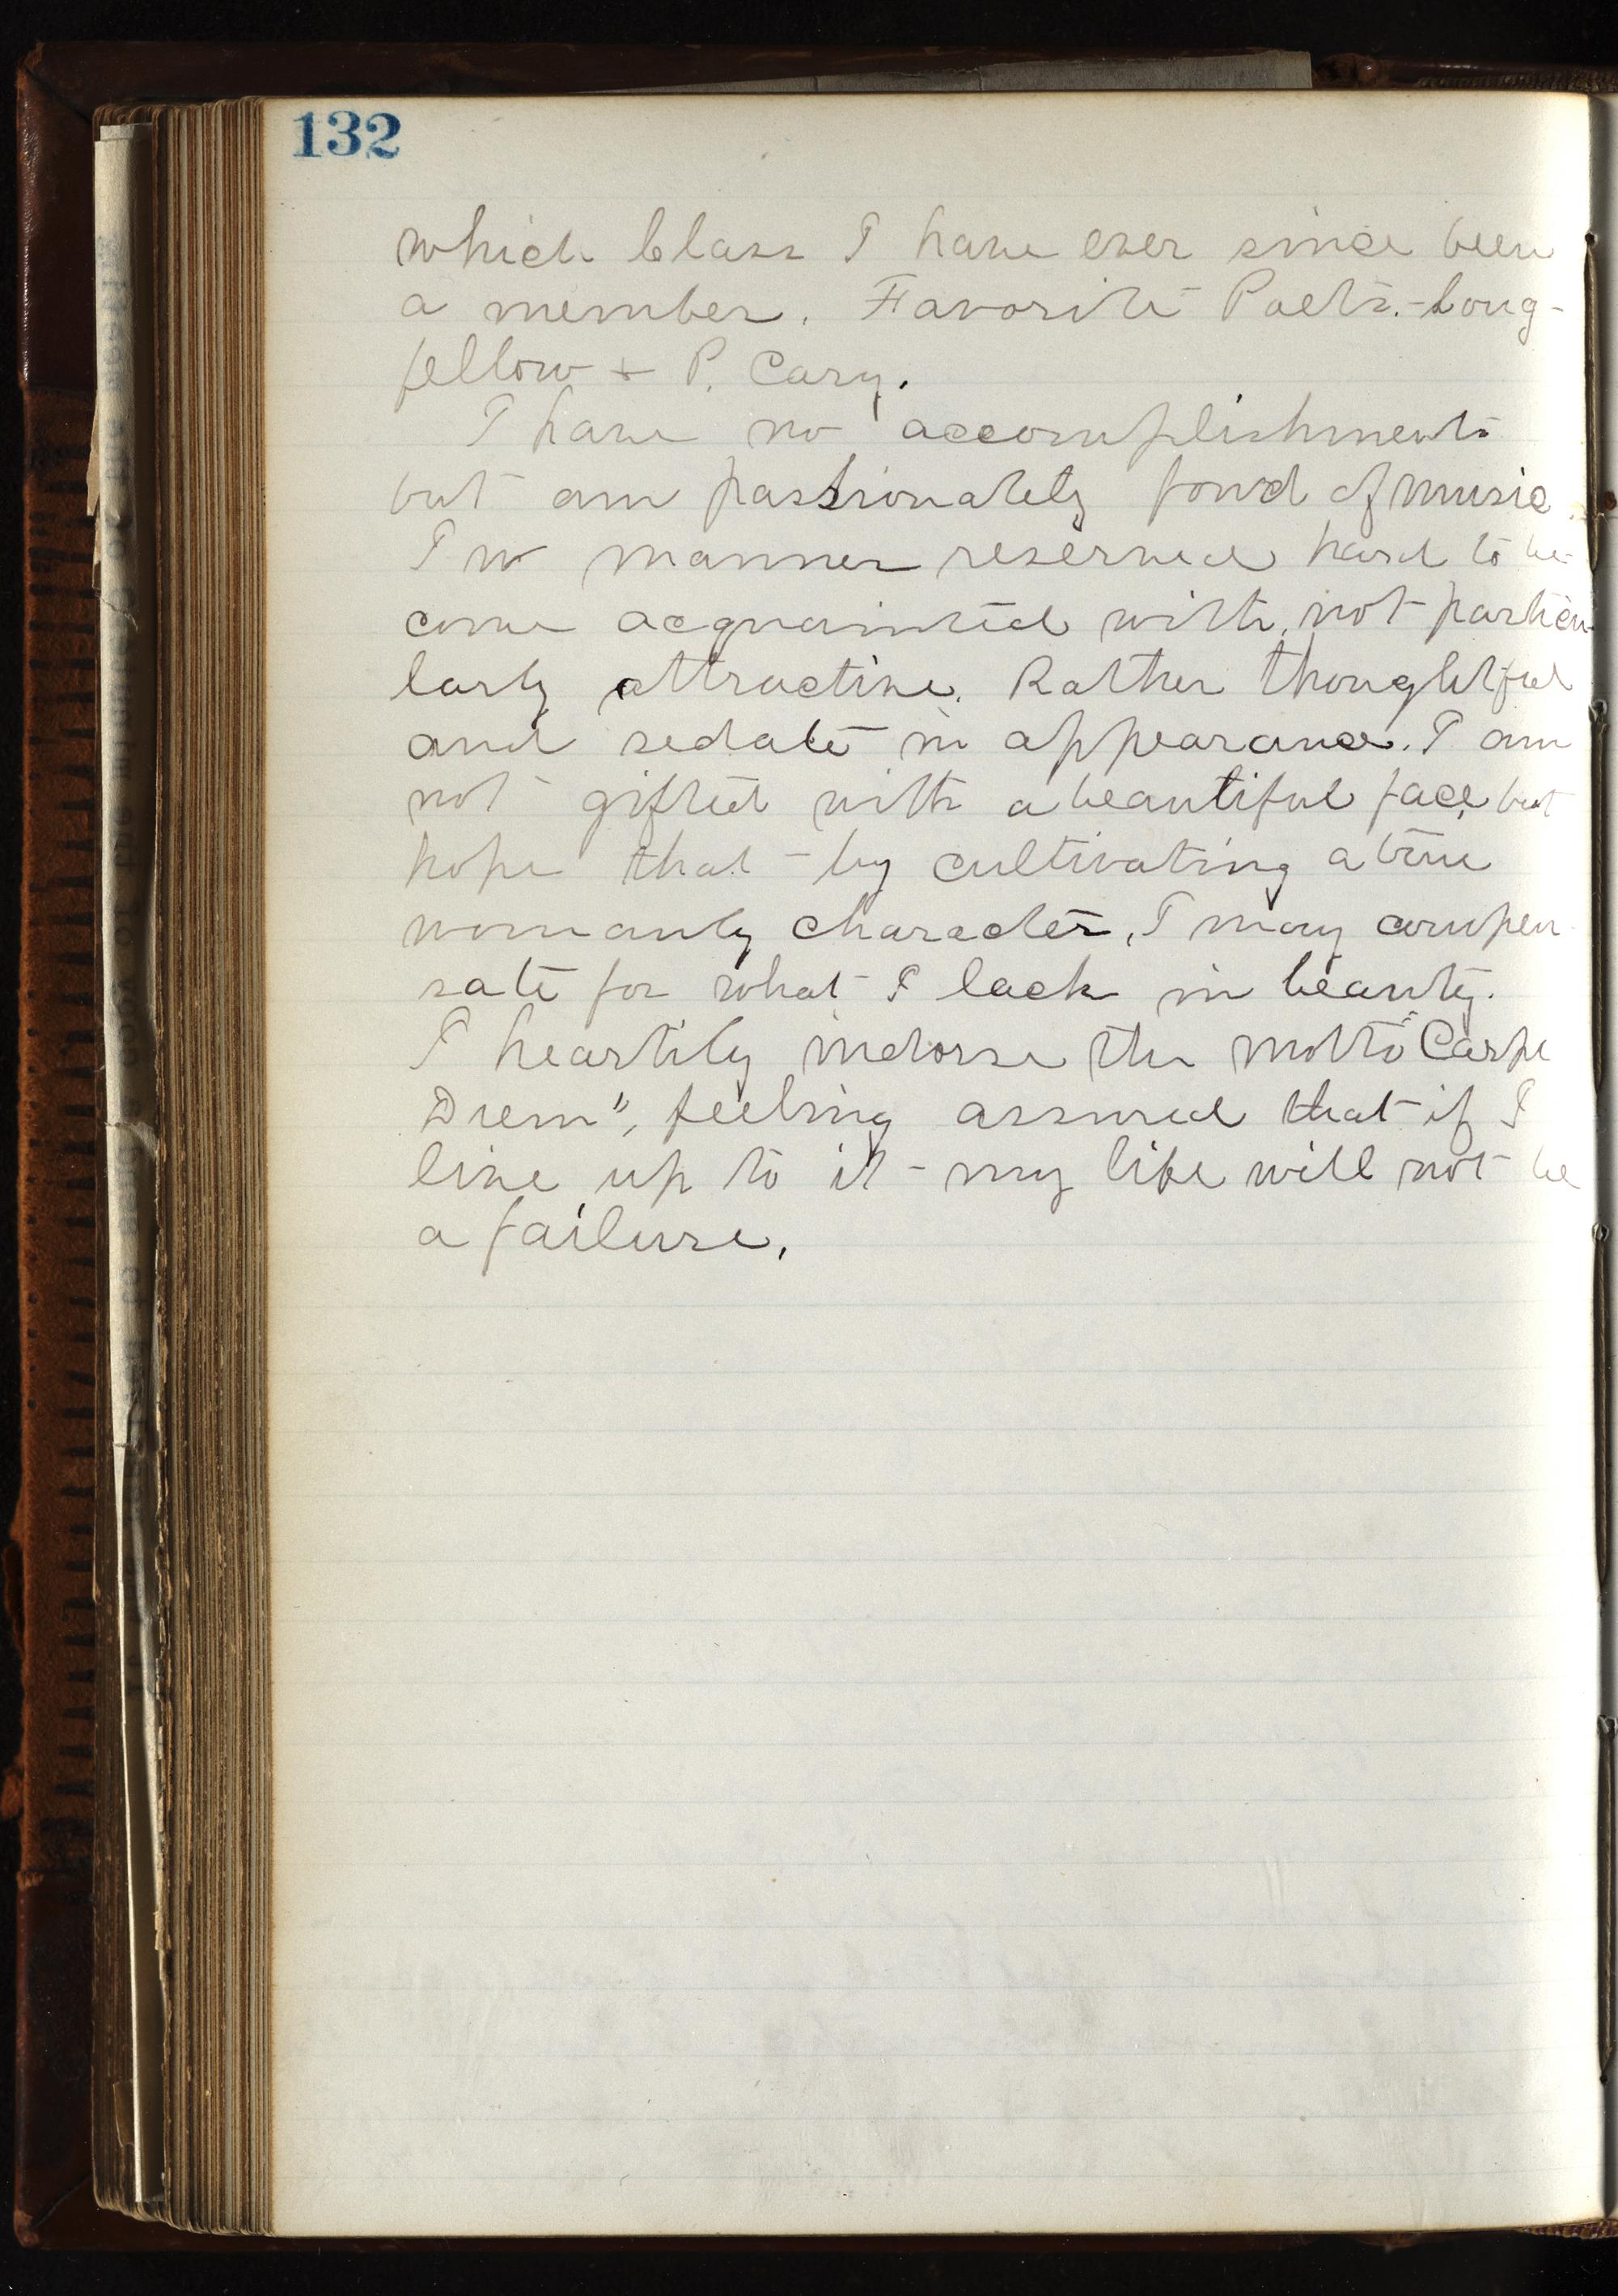 132
which Class I have ever since been
a member. Favorite Poets.-Long-
fellow + P. Cary.
I have no accomplishments
but am passionately fond of music.
In manner reserved hard to be-
come acquainted with, not particu-
larly attractive. Rather thoughtful
and sedate in appearance. I am
not gifted with a beautiful face, but
hope that by cultivating a true
womanly character, I may compen-
sate for what I lack in beauty.
I heartily indorse the motto "Carpe
Diem", feeling assured that if I
live up to it my life will not be
a failure.